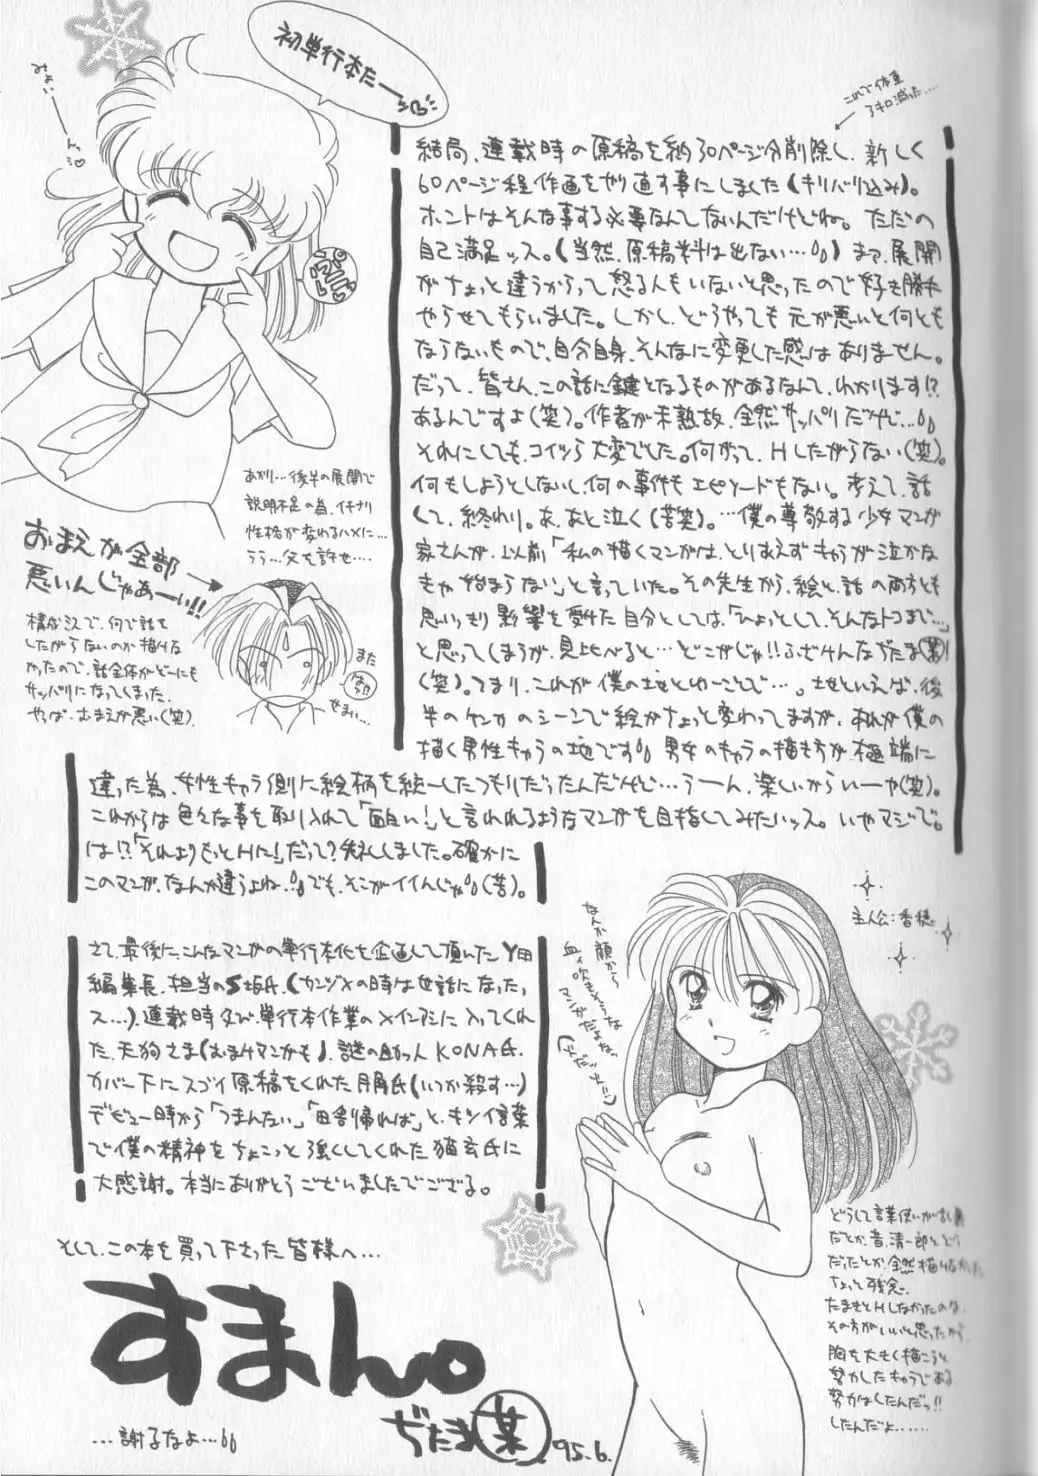 初単行本だー
みょいーん
ぷにぷに
これで体重
3キロ減った....
結局、連載時の原稿を約30ページ分削除し、新しく
60ページ程作画をやり直す事にしました(キリバリ込み)。
ホントはそんな事する必要なんてないんだけどね。ただの
自己満足ッス。(当然、原稿料は出ない…)まァ、展開
がちょっと違うからって怒る人もいないと思ったので好き勝手
やらせてもらいました。しかし、どうやっても元が悪いと何とも
ならないもので、自分自身、そんなに変更した感はありません。
だって、皆さん、この話に鍵となるものがあるなんて、わかります!?
あるんですよ(笑)。作者が未熟故、全然サッパリだけど…
それにしても、コイツら大変でした。何がって、Hしたがらない(笑)。
何もしようとしないし、何の事件もエピソードもない。考えて、話
して、終わり。あ、あと泣く(苦笑)。…僕の尊敬する少女マンガ
家さんが、以前「私の描くマンガは、とりあえずキャラが泣かな
きゃ始まらない」と言っていた。その先生から、絵と話の両方とも
思いっきり影響を受けた自分としては、「ひょっとして、そんなトコまで…」
と思ってしまうが、見比べると…どこがじゃ!!ふざけんなぢたま(某)!
(笑)。つまり、これが僕の地とゆーことで…。地といえば、後
半のケンカのシーンで絵がちょっと変わってますが、あれが僕の
描く男性キャラの地です 男女のキャラの描き方が極端に
違った為、女性キャラ側に絵柄を統一したつもりだったんだけど…うーん、楽しいからいーや(笑)。
これからは色々な事を取り入れて「面白い!」と言われるようなマンガを目指してみたいッス。いやマジで。
は!?「それよりもっとHに!」だって?失礼しました。確かに
このマンガ、なんか違うよね でも、そこがイイんじゃ(苦)。
あかり…後半の展開で
説明不足の為、イキナリ
性格が変わるハメに…
うう…父を許せ….
おまえが全部
悪いんじゃあーい!!
構成上で、何で話を
したがらないのか描けな
かったので、話全体がどーにも
サッパリになってしまった。
やっぱ、おまえが悪い(笑)
また
せまい…
さて、最後に、こんなマンガの単行本化を企画して頂いたY田
編集長、担当のS坂氏、(カンヅメの時は世話になったッ
ス…)、連載時及び、単行本作業のメインアシに入ってくれ
た、天狗さま(おまけマンガも)、謎の助っ人KONA氏、
カバー下にスゴイ原稿をくれた月角氏(いつか殺す…)
デビュー時から「つまんない」、「田舎帰れば」と、キツイ言葉
で僕の精神をちょこっと強くしてくれた猫玄氏に
大感謝。本当にありがとうございましたでござる。
そして、この本を買って下さった皆様へ…
すまん。
ぢたま(某) '95.6.
…謝るなよ…
主人公:香穂
なんか顔から
血ィ吹きそうな
マンガだよね。
どうして言葉使いが
だとか、昔、清一郎とどう
だったとか、全然描けなかった
ちょっと残念。
たまきとHしなかったのは、
その方がいいと思ったから
胸を大きく描こうと
努力したキャラである
努力はしたんだっ!!
したんだよ......